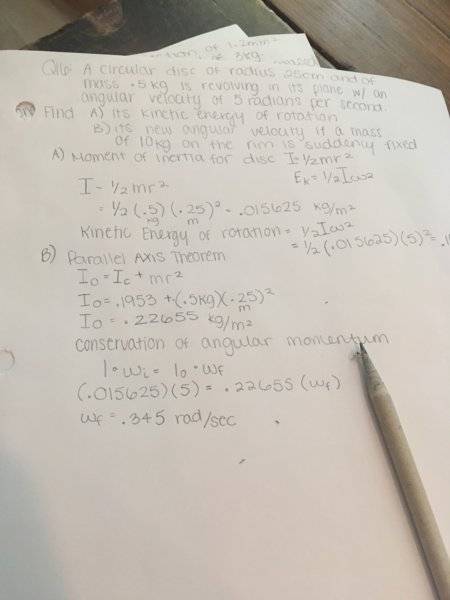 of 1.2mm²
3kg.
Q16: A circular disc of radius 25cm and of
mass .5 kg is revolving in its plane w/ an
angular velocity of 5 radians per second.
Find A) its kinetic energy of rotation
B) its new angular velocity if a mass
of 10kg on the rim is suddenly fixed
A) Moment of inertia for disc I=1/2mr²
I = 1/2 mr² Ek = 1/2Iω²
= 1/2 (.5) (.25)² = .015625 kg/m²
kg m
Kinetic Energy of rotation = 1/2Iω²
= 1/2 (.015625)(5)² = .1
B) Parallel Axis Theorem
Io = Ic + mr²
Io = .1953 + (.5kg)(.25)²
m
Io = .22655 kg/m²
conservation of angular momentum
I • ωi = Io • ωf
(.015625)(5) = .22655 (ωf)
ωf = .345 rad/sec